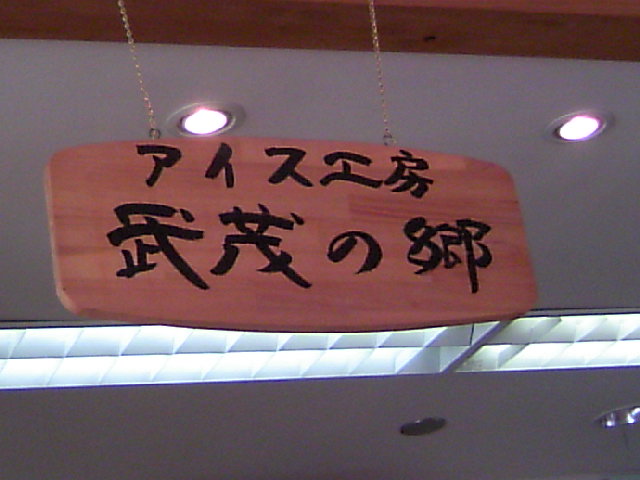 アイス工房
武茂の郷